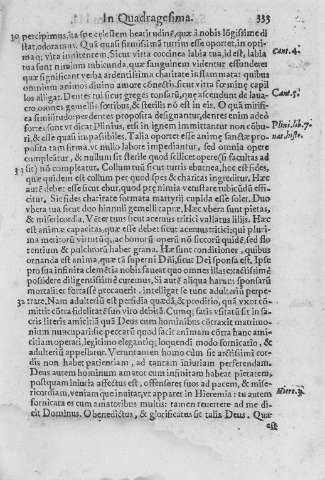 In Quadragesima. 333
30 percipimus, ita spe cælestem beatitudinẽ, quæ à nobis lõgissimè di
stat, odoramur. Quã quasi firmissimã turrim esse oportet, in opti-
ma; vita innitentem. Sicut vitta coccinea labia tua, id est, labia Cant. 4.
tua sunt nimium rubicunda, quæ sanguinem videntur effundere:
quæ significant verba ardentissima charitate inflammata: quibus
omnium animos divino amore cõstrictos, sicut vitta fœminę capil
los alligat. Dentes tui sicut greges tonsarũ, quæ ascendunt de lavac- Cant. 4.
ro, omnes gemellis fœtibus, & sterilis nõ est in eis. O quã mirifi-
ca similitudo: per dentes proposita designantur, dentes enim adeò
fortes sunt vt dicat Plinius, etsi in ignem immittantur non cõbu- Plini. lib. 7.
ri, & esse quasi impassibiles. Talia oportet esse animę sanctæ pro- nat. histo.
posita tam firma, vt nullo labore impediantur, sed omnia opere
compleatur, & nullum sit sterile quod scilicet opere (si facultas ad
31 sit) nõ compleatur. Collum tuũ sicut turris eburnea, hec est fides,
quæ quidem est collum per quod spes & charitas ingreditur. Hæc
autẽ debet esse sicut ebur, quod prę nimia vetustate rubicũdũ effi-
citur. Sic fides charitate formata martyrij cupida esse solet. Duo
vbera tua sicut duo hinnuli gemelli capreæ. Hæc vbera sunt pietas,
& misericordia. Vẽter tuus sicut acervus tritici vallatus lilijs. Hæc
est animæ capacitas, quæ esse debet sicut acervus tritici: qui pluri-
ma meritorũ virtutũq; ac honorũ operũ nõ siccorũ quidẽ, sed flo
rentium & pulchrorũ habet grana. Hæ sunt conditiones, quibus
ornanda est anima, quæ tã superni Dñi, sicut Dei sponsa est. Ipse
pro sua infinita clemẽtia nobis faveat quo omnes illas exactissimè
possidere diligentissimè curemus. Si autẽ aliqua harum sponsarũ
mortaliter fortassè peccaverit, intelligat se tunc adulterã perpe-
32 trare. Nam adulteriũ est perfidia quædã, & proditio, quã vxor cõ-
mittit cõtra fidelitatẽ suo viro debitã. Cumq; satis vsitatũ sit in sa-
cris literis amicitiã quã Deus cum hominibus cõtraxit matrimo-
nium nuncupari: sic peccatũ quod facit animam cõtra hanc ami-
citiam operari, legitimo elegantiq; loquendi modo fornicatio, &
adulteriũ appellatur. Veruntamen homo cùm sit arctissimi cor-
dis non habet patientiam, ad tantam iniuriam perferendam.
Deus autem hominum amator cum infinitam habeat pietatem,
postquam iniuria affectus est, offensores suos ad pacem, & mise-
ricordiam, veniamque invitat, vt apparet in Hieremia: tu autem Hiere. 3.
fornicata es cum amatoribus multis: tamen revertere ad me di-
cit Dominus. O benedictus, & glorificatus sit talis Deus. Quæ
est